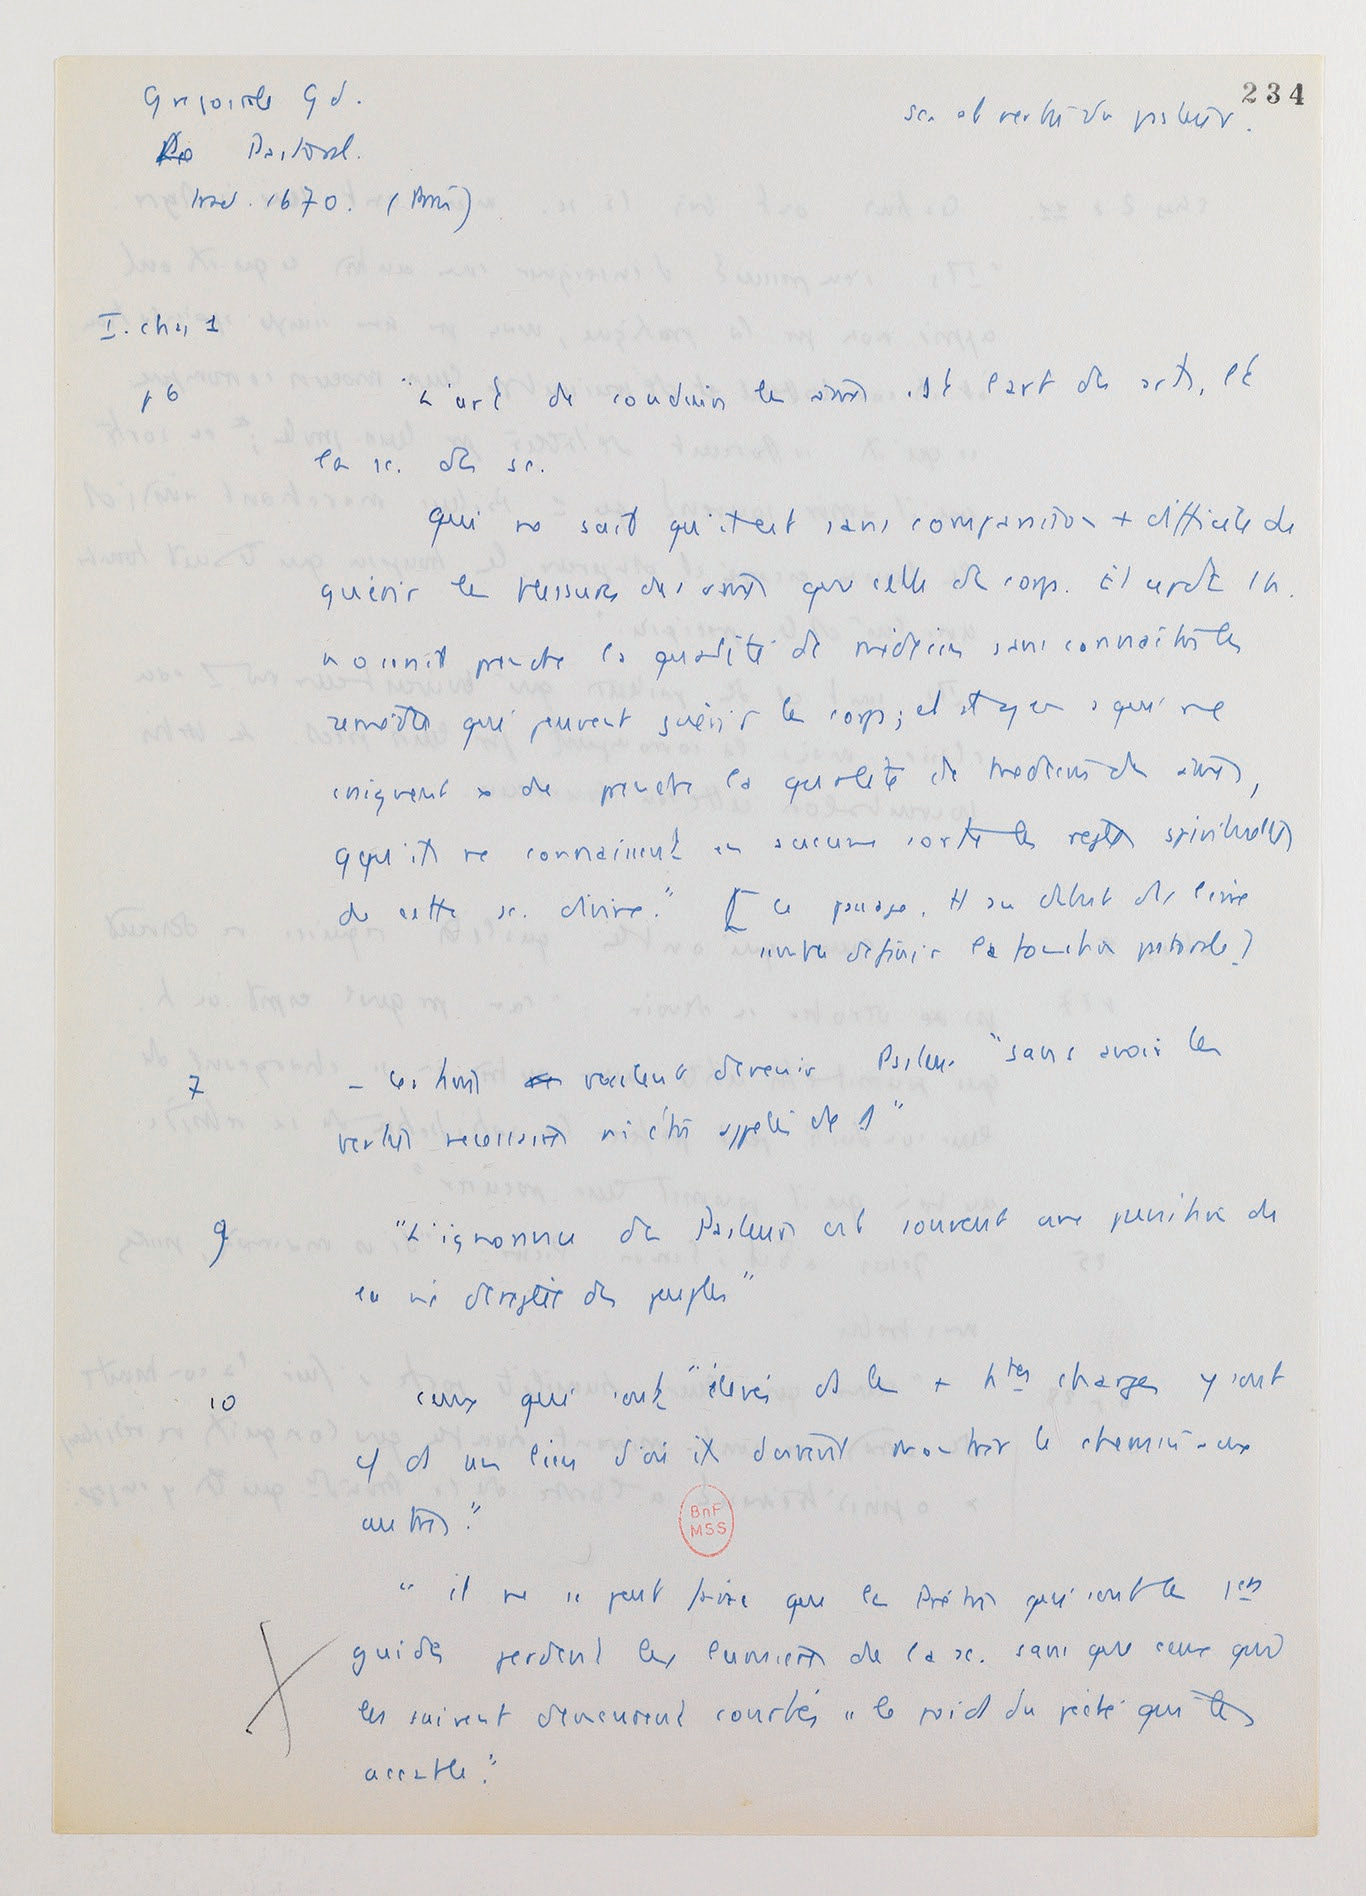 234
Sc. et vertu du pasteur.
Grégoire le Gd.
Pastoral.
trad. 1670. (Paris)
I. chap 1
p 6 "L'art de conduire les âmes est l'art des arts, et
la sc. des sc.
Qui ne sait qu'il est sans comparaison + difficile de
guérir les blessures des âmes que celle des corps. Et cepdt
n'osent prendre la qualité de médecin sans connaître les
remèdes qui peuvent guérir les corps; et il y en a qui ne
craignent pas de prendre la qualité de médecins des âmes,
qqu'ils ne connaissent en aucune sorte les règles spirituelles
de cette sc. divine." [ce passage, au début du livre
définir la fonction pastorale]
7 - Les hres veulent devenir Pasteur "sans avoir les
vertus nécessaires ni être appelés de"
9 "L'ignorance des Pasteurs est souvent une punition de
la vie déréglée des peuples"
10 ceux qui sont "élevés ds les + htes charges y sont
ds un lieu d'où ils doivent montrer le chemin aux
autres."
"il ne se peut faire que les Prêtres qui sont les 1ers
guides perdent les lumières de la sc. sans que ceux qui
les suivent demeurent courbés ss le poids du péché qui les
accable."
BnF
MSS